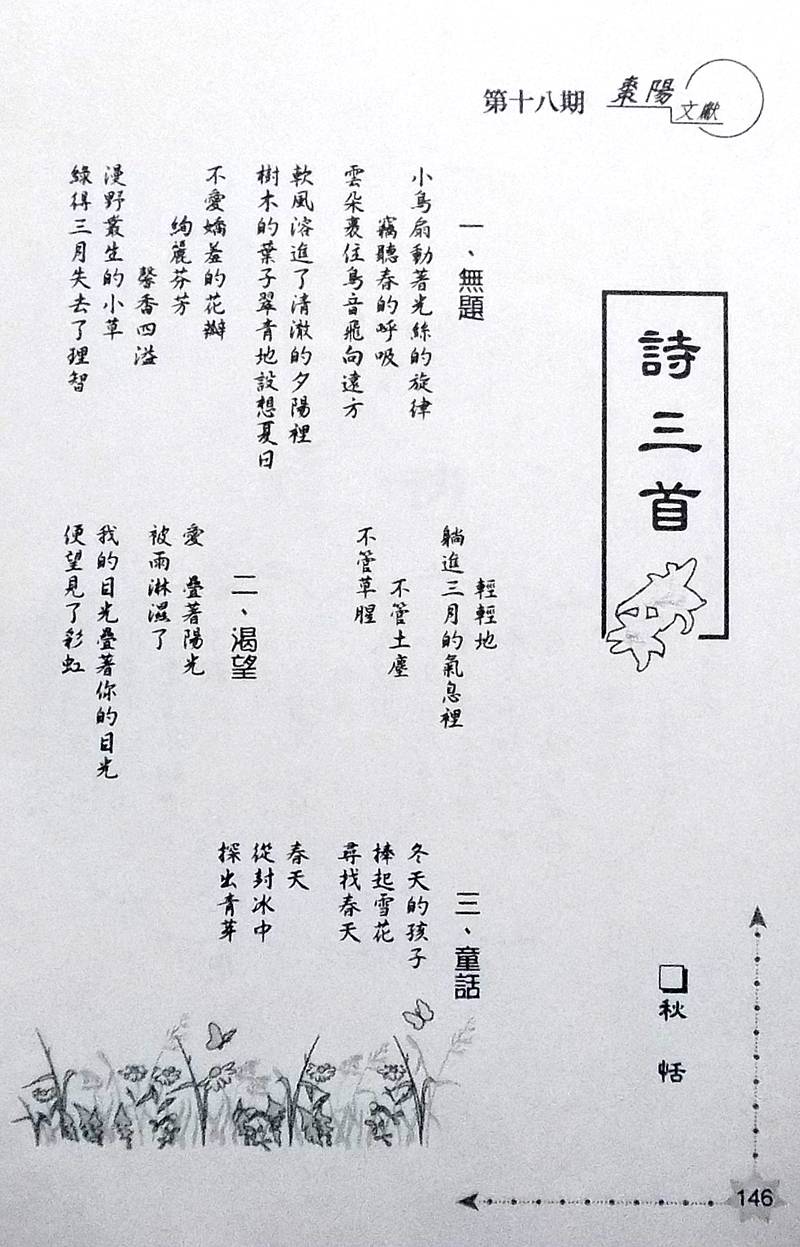 第十八期
棗陽
文獻
詩三首
秋恬
一、無題
小鳥扇動著光絲的旋律
竊聽春的呼吸
雲朵裹住鳥音飛向遠方
軟風溶進了清澈的夕陽裡
樹木的葉子翠青地設想夏日
不愛嬌羞的花瓣
絢麗芬芳
馨香四溢
漫野叢生的小草
綠得三月失去了理智
輕輕地
躺進三月的氣息裡
不管土塵
不管草腥
二、渴望
愛 疊著陽光
被雨淋濕了
我的目光疊著你的目光
便望見了彩虹
三、童話
冬天的孩子
捧起雪花
尋找春天
春天
從封冰中
探出青芽
146